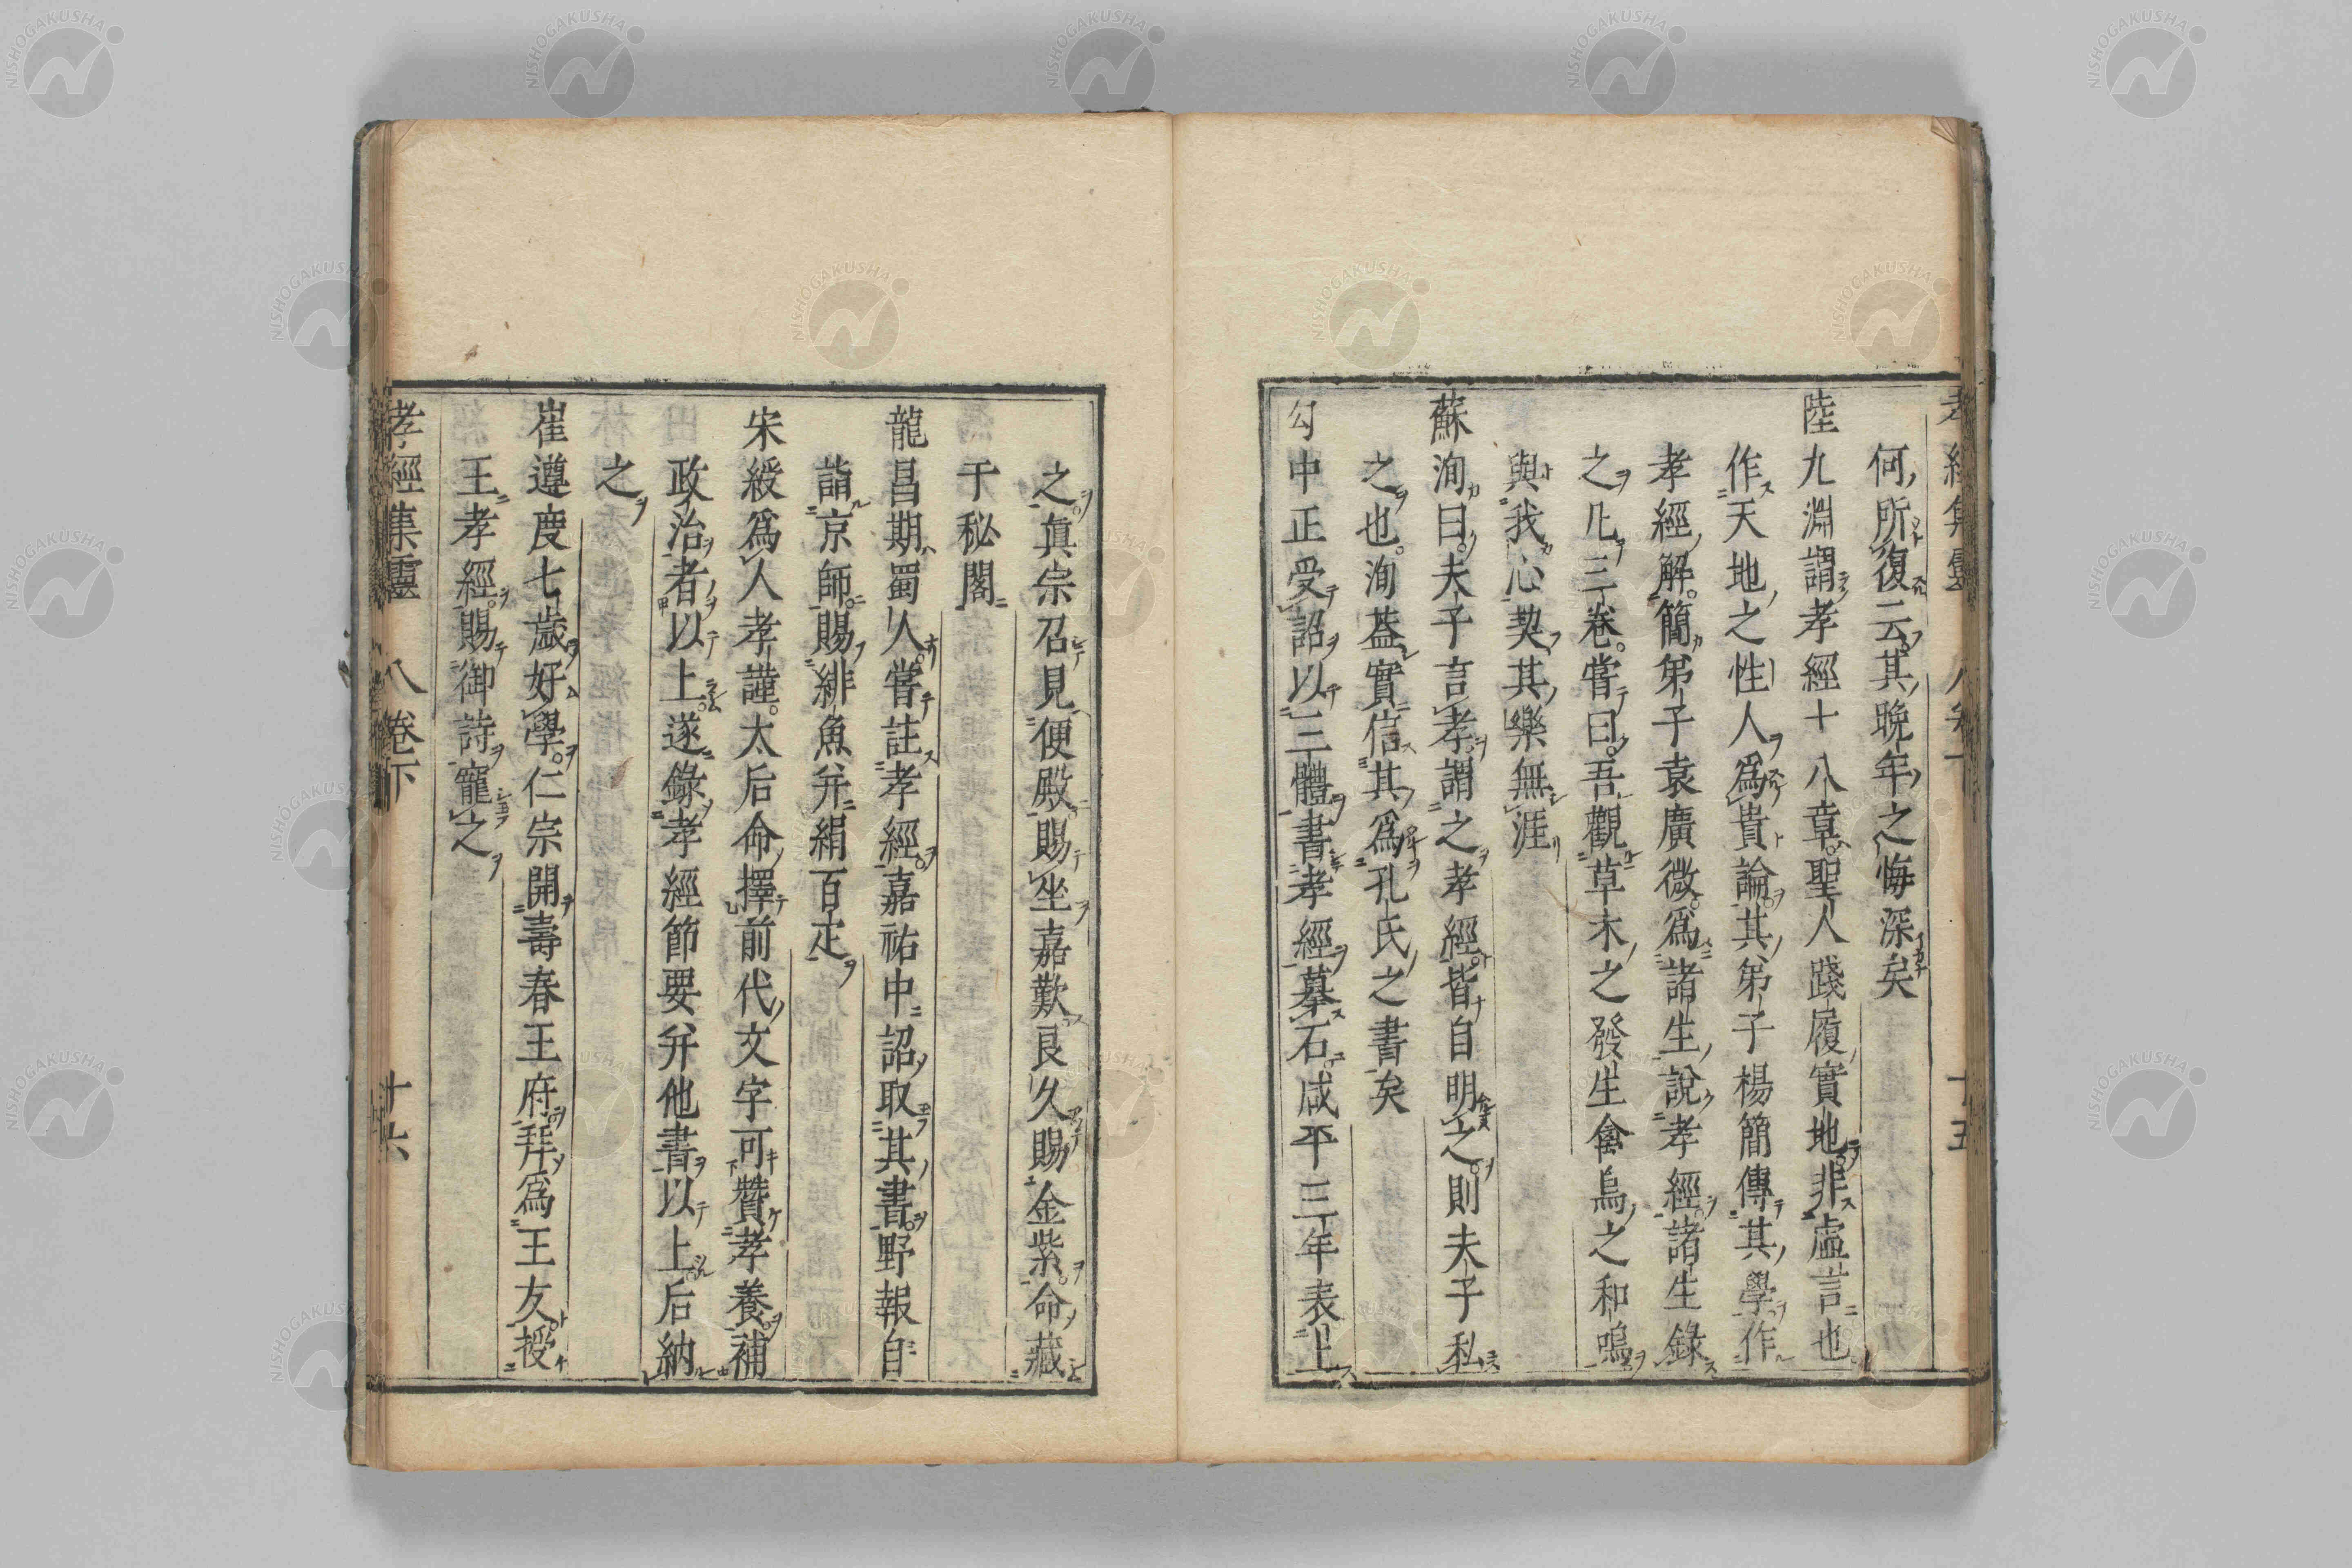 何所復云其晚年之悔深矣
陸九淵謂孝經十八章聖人踐履實地非虛言也
作天地之性人爲貴論其弟子楊簡傳其學作
孝經解簡弟子袁廣微爲諸生說孝經諸生錄
之凡三卷嘗曰吾觀草木之發生禽鳥之和鳴
與我心契其樂無涯
蘇洵曰夫子言孝謂之孝經皆自明之則夫子私
之也洵葢實信其爲孔氏之書矣
勾中正受詔以三體書孝經摹石咸平三年表上
之真宗召見便殿賜坐嘉歎良久賜金紫命藏
于秘閣
龍昌期蜀人嘗註孝經嘉祐中詔取其書野報自
詣京師賜緋魚并絹百疋
宋綬爲人孝謹太后命擇前代文字可贊孝養補
政治者以上遂錄孝經節要并他書以上后納
之
崔遵度七歲好學仁宗開壽春王府拜爲王友授
王孝經賜御詩寵之
孝經集靈 卷下 十六
NISHOGAKUSHA